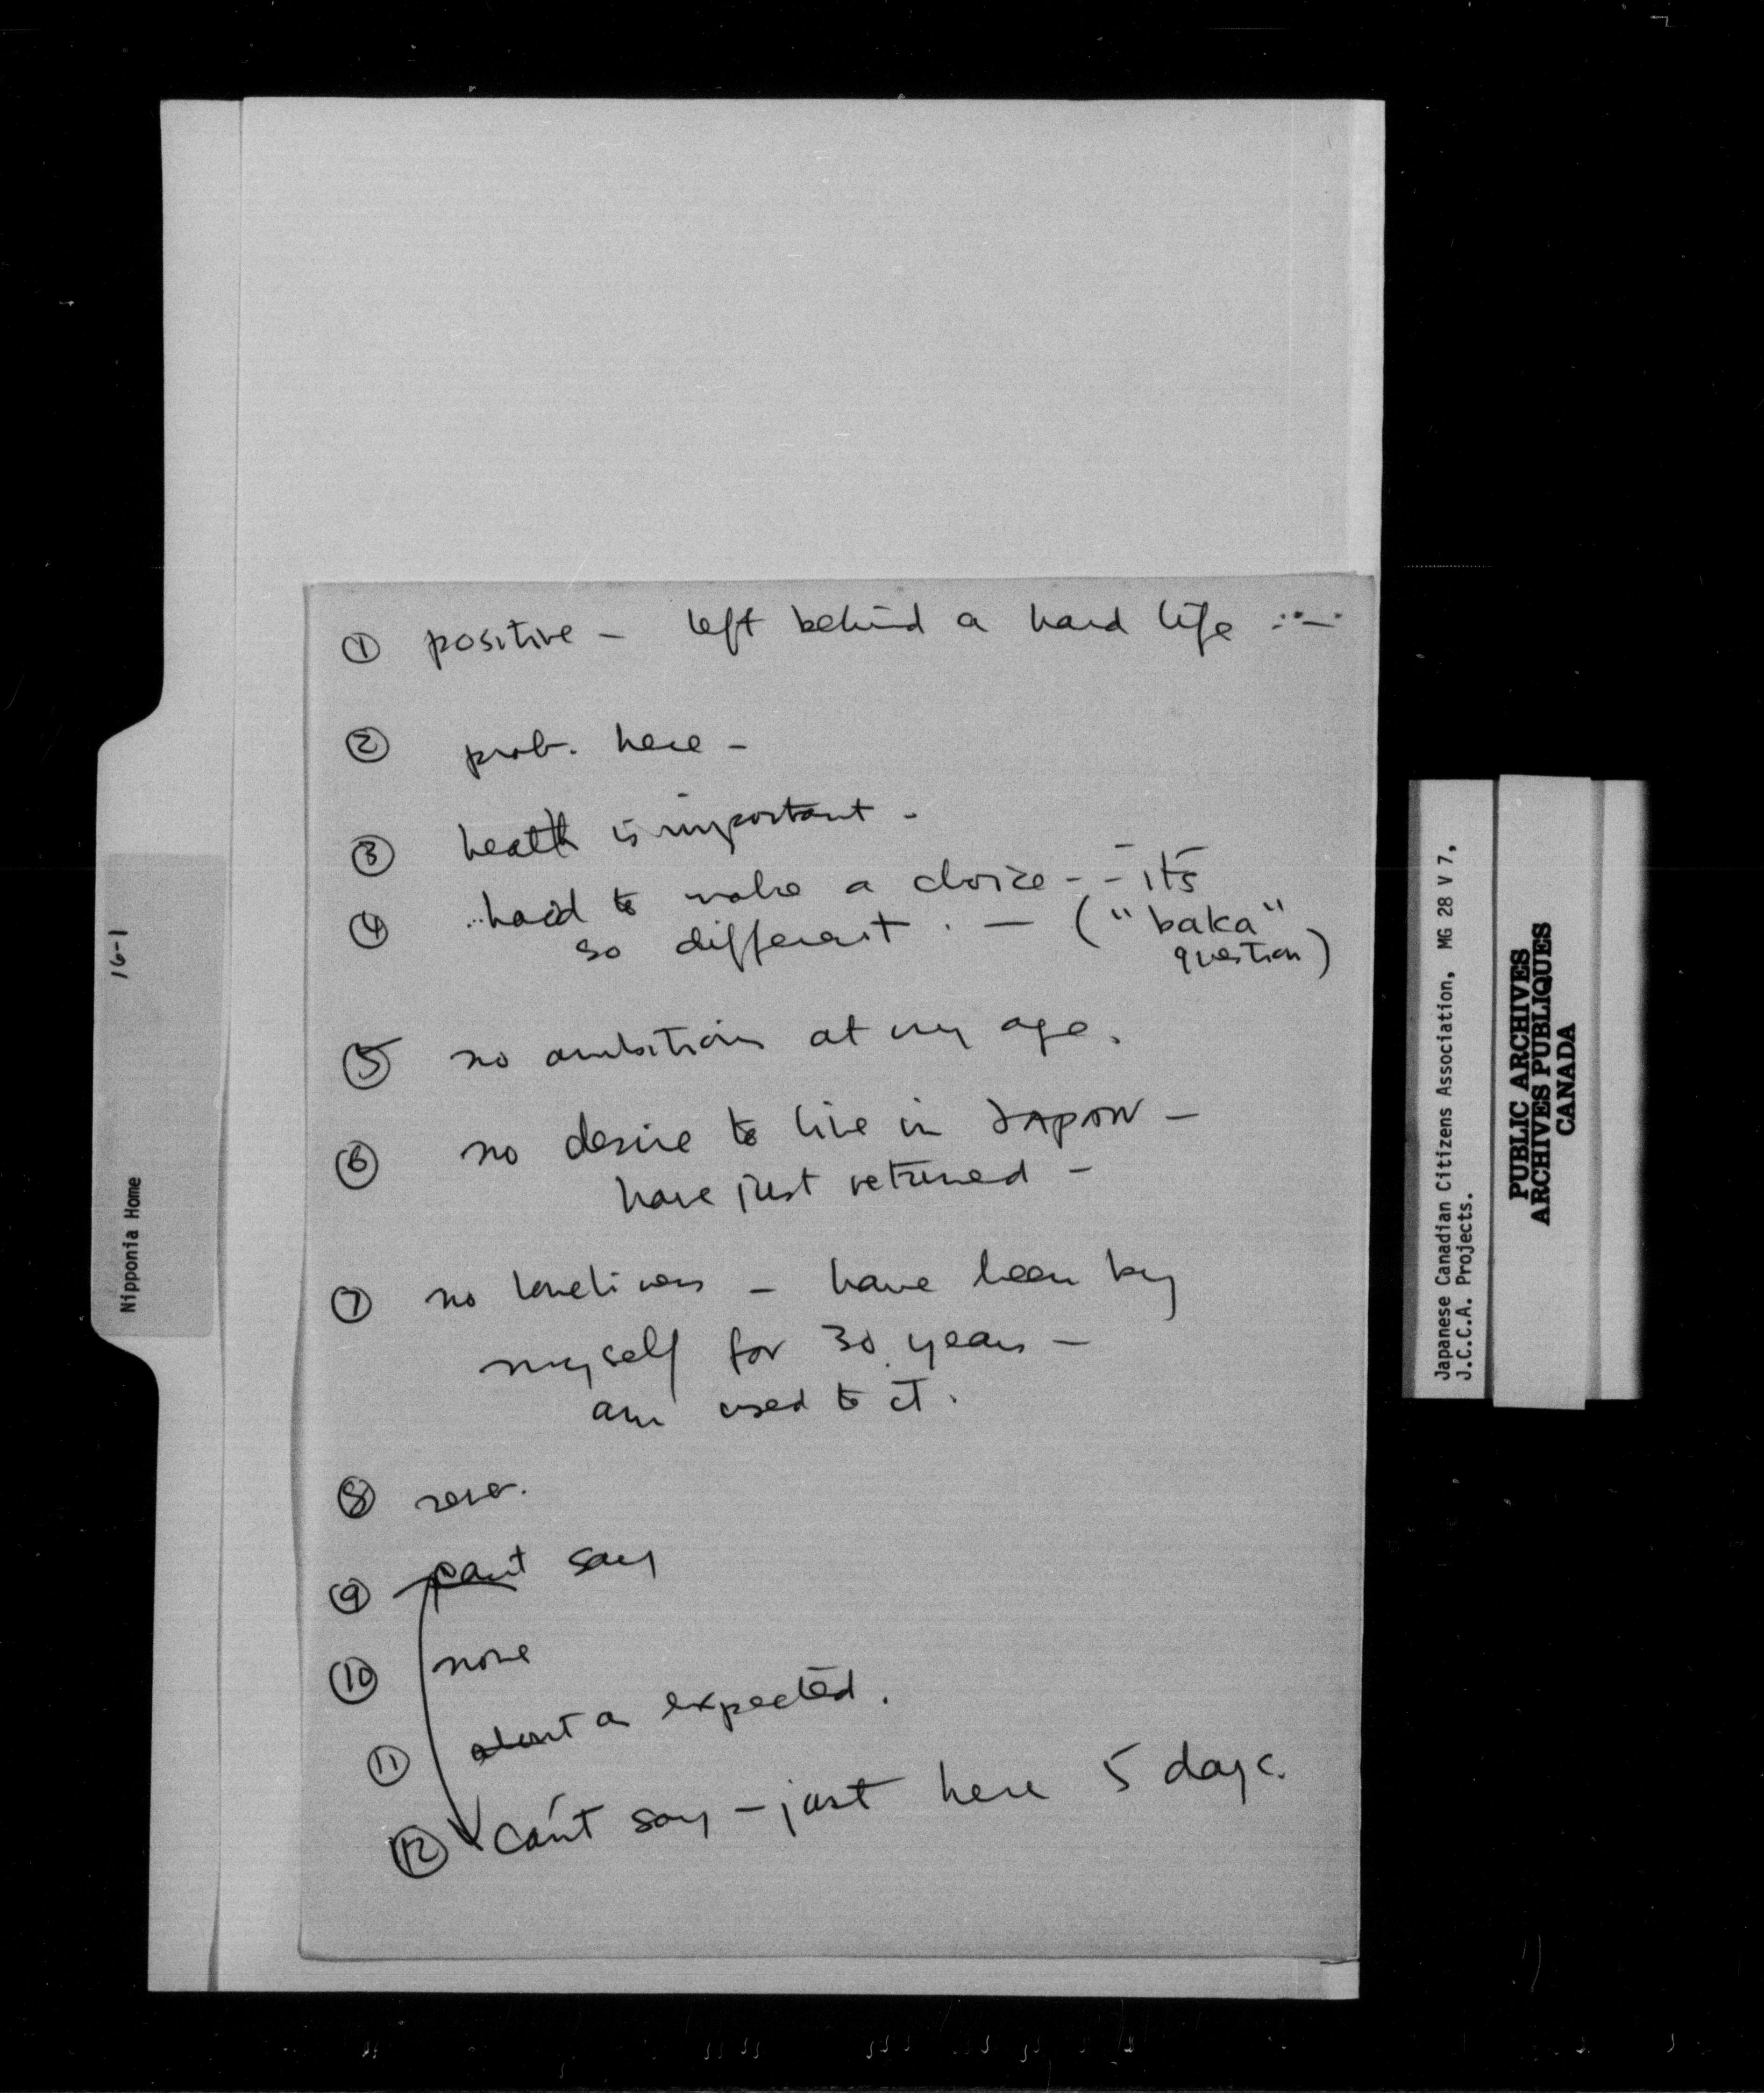 ① positive – left behind a hard life
② prob. here –
③ health is important –
④ hard to make a choice - - its
so different . — ("baka"
question)
⑤ no ambitions at my age.
⑥ no desire to live in JAPAN –
have just returned –
⑦ no loneliness – have been by
myself for 30 years –
am used to it.
⑧
⑨ can't say
⑩ none
⑪ about as expected.
⑫ can't say – just here 5 days.
Nipponia Home 16-1
Japanese Canadian Citizens Association, MG 28 V 7,
J.C.C.A. Projects.
PUBLIC ARCHIVES
ARCHIVES PUBLIQUES
CANADA